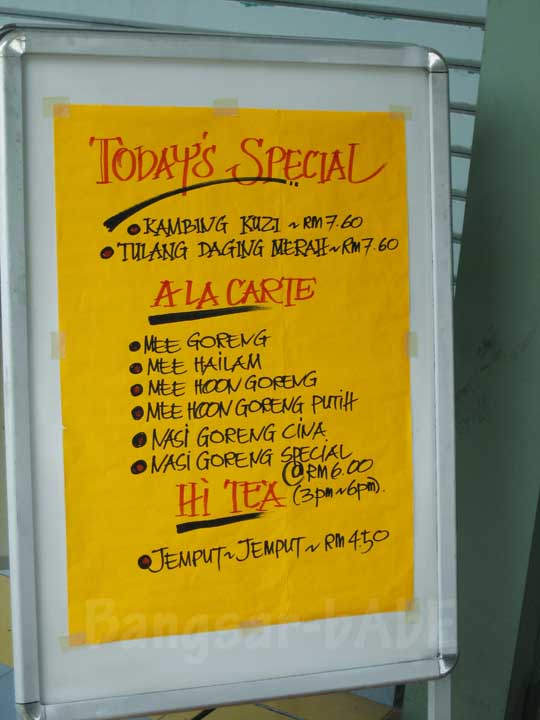 TODAY'S SPECIAL
KAMBING KUZI ~ RM 7.60
TULANG DAGING MERAH ~ RM 7.60
A LA CARTE
MEE GORENG
MEE HAILAM
MEE HOON GORENG
MEE HOON GORENG PUTIH
NASI GORENG CINA
NASI GORENG SPECIAL
@ RM 6.00
HI TEA (3pm ~ 6pm).
JEMPUT ~ JEMPUT ~ RM 4.50
Bangsar-bAbE